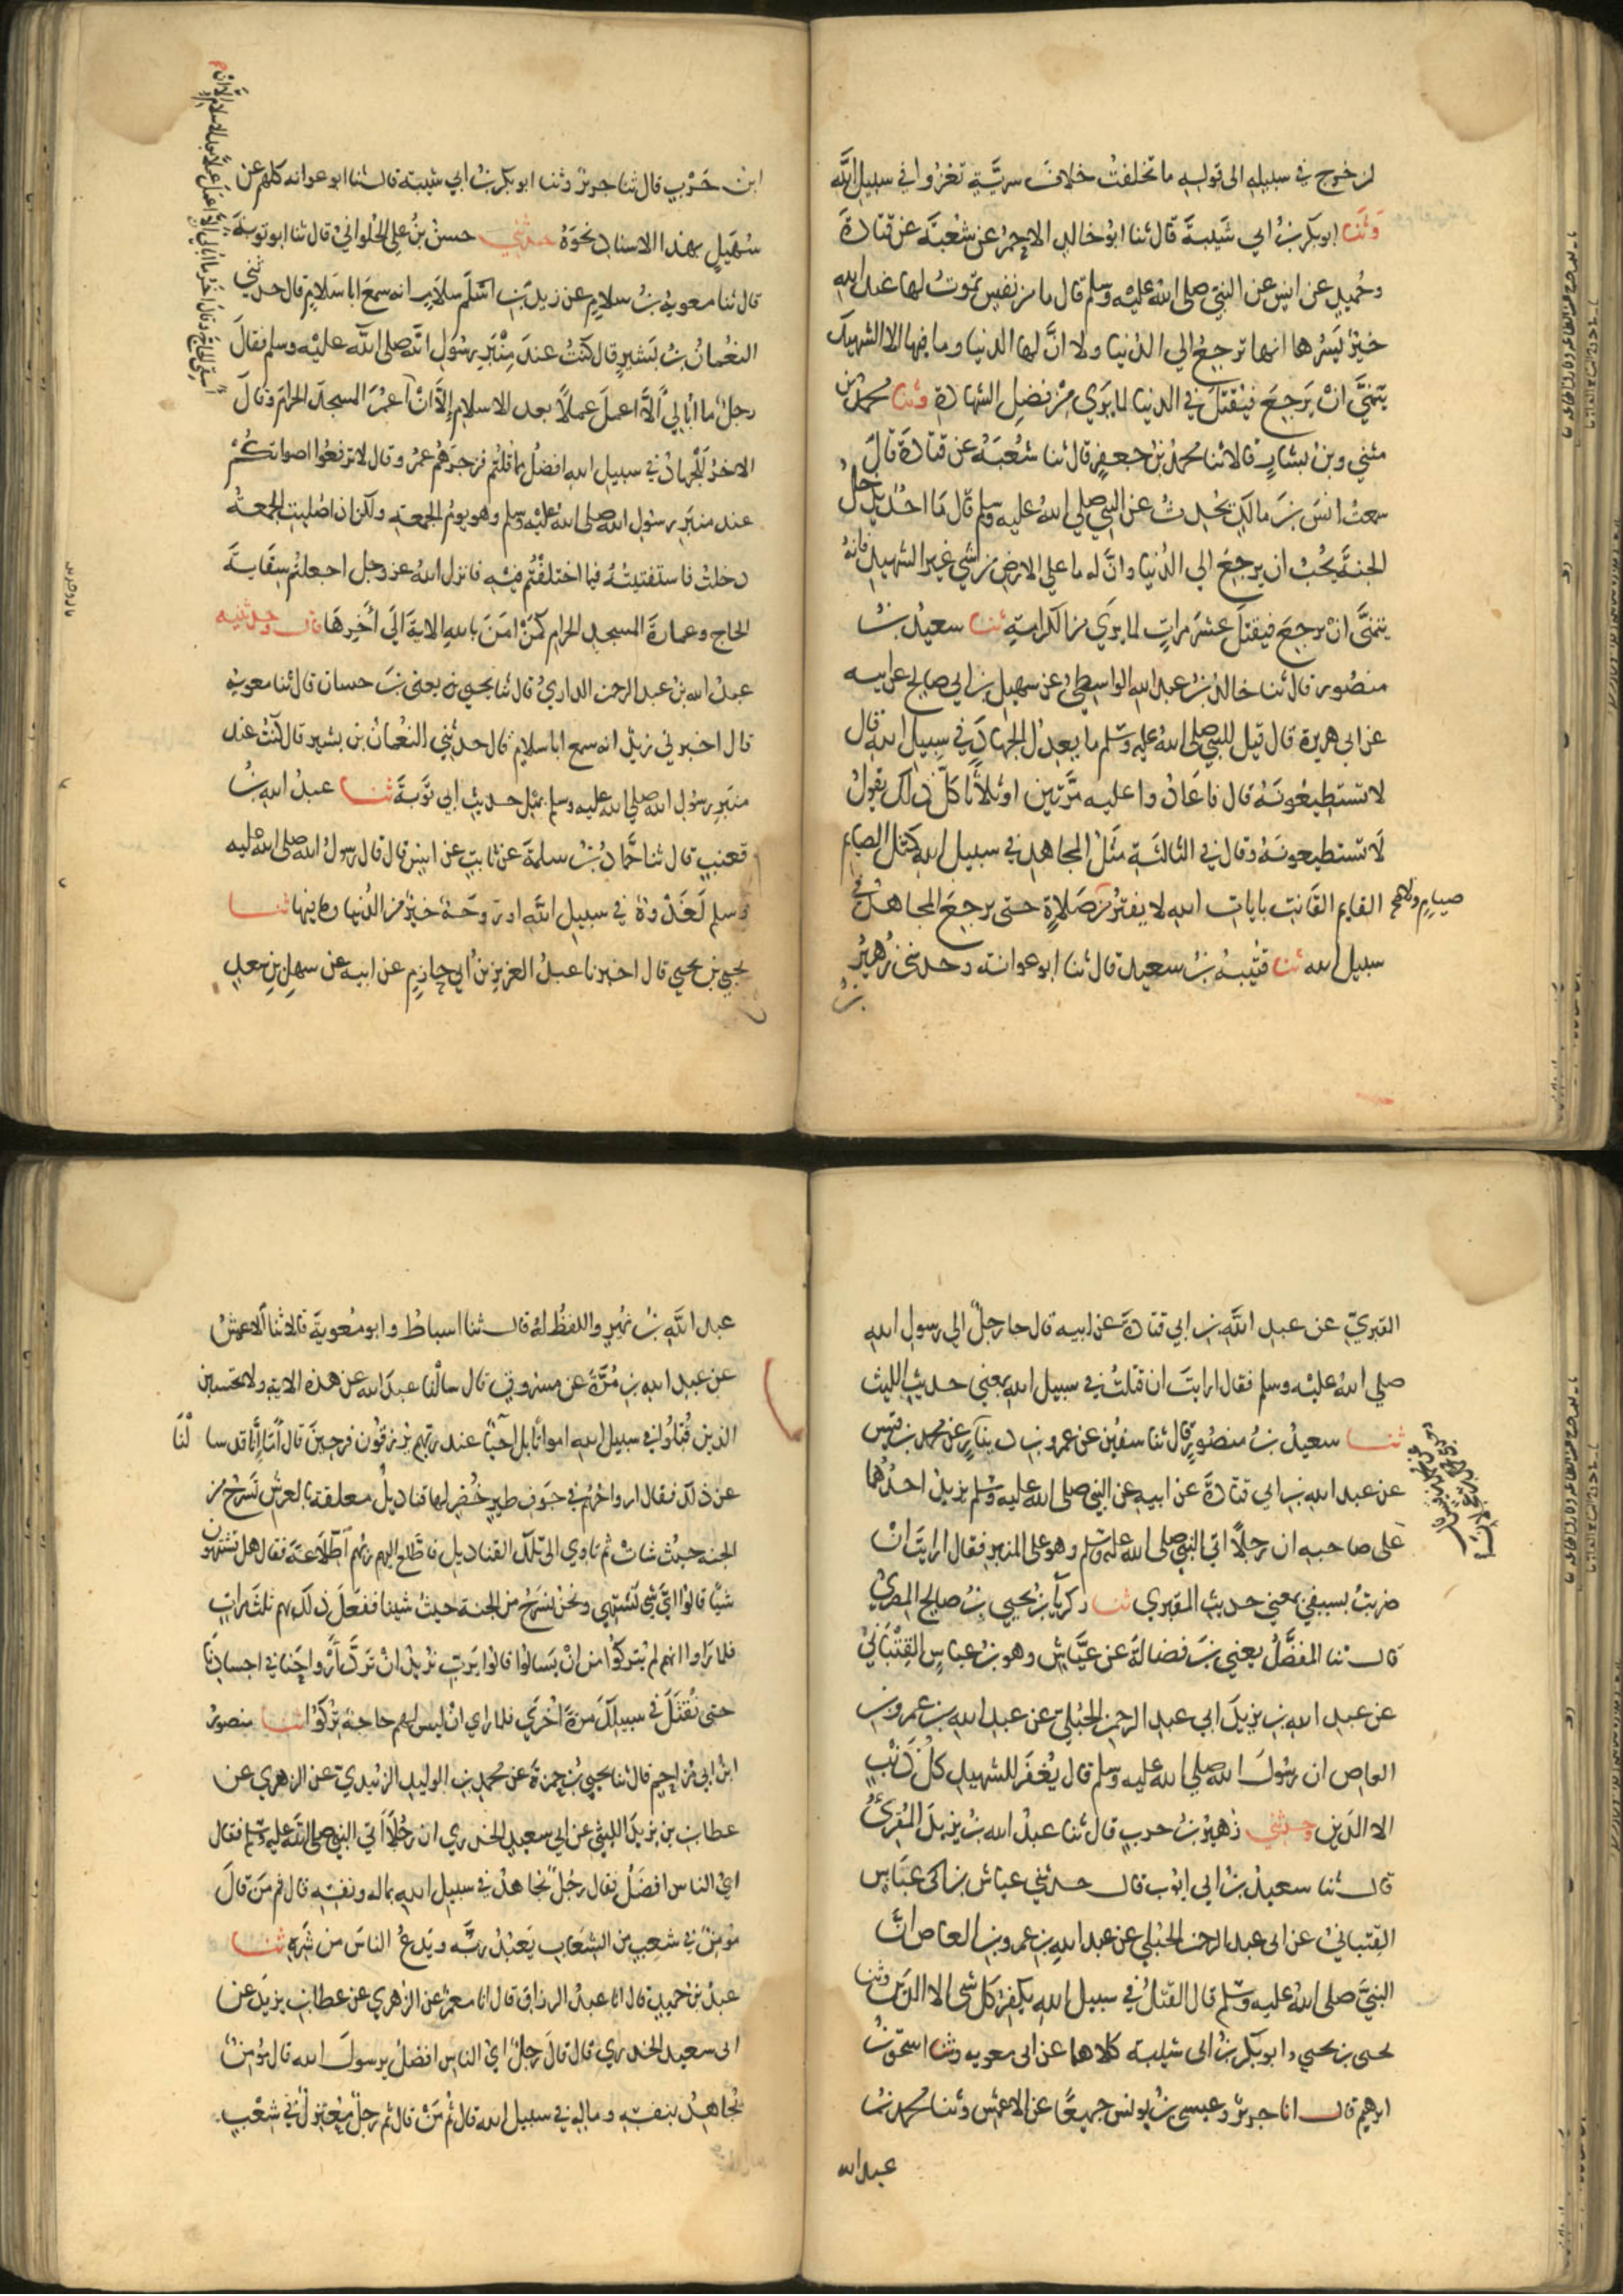 لمن خرج في سبيله الى قوله ما تخلفت خلاف سرية تغزوا في سبيل الله
وثنا ابو بكر بن ابي شيبة قال ثنا ابو خالد الاحمر عن شعبة عن قتادة
وحميد عن انس عن النبي صلى الله عليه وسلم قال ما من نفس تموت لها عند الله
خير يسرها انها ترجع الي الدنيا ولا ان لها الدنيا وما فيها الا الشهيد
يتمني ان يرجع فيقتل في الدنيا لما يري من فضل الشهادة وثنا محمد بن
مثني وبن بشار قالا ثنا محمد بن جعفر قال ثنا شعبة عن قتادة قال
سمعت انس بن مالك يحدث عن النبي صلي الله عليه وسلم قال ما احد يدخل
الجنة يحب ان يرجع الي الدنيا وان له ما علي الارض من شي غير الشهيد فانه
يتمني ان يرجع فيقتل عشر مرات لما يري من الكرامة ثنا سعيد بن
منصور قال ثنا خالد بن عبد الله الواسطي عن سهيل بن ابي صالح عن ابيه
عن ابي هريرة قال قيل للنبي صلى الله عليه وسلم ما يعدل الجهاد في سبيل الله قال
لا تستطيعونه قال فاعادوا عليه مرتين او ثلاثا كل ذلك يقول
لا تستطيعونه وقال في الثالثة مثل المجاهد في سبيل الله كمثل الصايم
القايم القانت بايات الله لا يفتر من صلاة حتى يرجع المجاهد في
صيام ولا
سبيل الله ثنا قتيبة بن سعيد قال ثنا ابو عوانة وحدثني زهير
بن
ابن حرب قال ثنا جرير وثنا ابو بكر بن ابي شيبة قال ثنا ابو عوانه كلهم عن
سهيل بهذا الاسناد نحوه حدثني حسن بن علي الحلواني قال ثنا ابو توبة
قال ثنا معوية بن سلام عن زيد بن اسلم سلام انه سمع ابا سلام قال حدثني
النعمان بن بشير قال كنت عند منبر رسول الله صلى الله عليه وسلم فقال
رجل ما ابالي الا اعمل عملا بعد الاسلام الا ان اعمر المسجد الحرام وقال
الاخر للجهاد في سبيل الله افضل مما قلتم فزجرهم عمر وقال لا ترفعوا اصواتكم
عند منبر رسول الله صلى الله عليه وسلم وهو يوم الجمعة ولكن اذا صليت الجمعة
دخلت فاستفتيته فيما اختلفتم فيه فانزل الله عز وجل اجعلتم سقاية
الحاج وعمارة المسجد الحرام كمن امن بالله الاية الي اخرها قال وحدثنيه
عبد الله بن عبد الرحمن الدارمي قال ثنا يحيي يعني بن حسان قال ثنا معوية
قال اخبرني زيد انه سمع ابا سلام قال حدثني النعمان بن بشير قال كنت عند
منبر رسول الله صلي الله عليه وسلم بمثل حديث ابي توبة ثنا عبد الله بن
قعنب قال ثنا حماد بن سلمة عن ثابت عن انس قال قال رسول الله صلى الله عليه
وسلم لغدوة في سبيل الله او روحة خير من الدنيا وما فيها ثنا
يحيي بن يحيي قال اخبرنا عبد العزيز بن ابي حازم عن ابيه عن سهل بن سعد
المقبري عن عبد الله بن ابي قتادة عن ابيه قال جا رجل الي رسول الله
صلي الله عليه وسلم فقال ارايت ان قتلت في سبيل الله بمعني حديث الليث
ثنا سعيد بن منصور قال ثنا سفين عن عمرو بن دينار عن محمد بن قيس
عن عبد الله بن ابي قتادة عن ابيه عن النبي صلى الله عليه وسلم يزيد احدهما
على صاحبه ان رجلا اتي النبي صلى الله عليه وسلم وهو علي المنبر فقال ارايت ان
ضربت بسيفي بمعني حديث المقبري ثنا زكريا بن يحيي بن صالح المصري
قال ثنا المفضل يعني بن فضالة عن عياش وهو بن عباس القتباني
عن عبد الله بن يزيد ابي عبد الرحمن الحبلي عن عبد الله بن عمرو بن
العاص ان رسول الله صلي الله عليه وسلم قال يغفر للشهيد كل ذنب
الا الدين وحدثني زهير بن حرب قال ثنا عبد الله بن يزيد المقرئ
قال ثنا سعيد بن ابي ايوب قال حدثني عياش بن عباس
القتباني عن ابي عبد الرحمن الحبلي عن عبد الله بن عمرو بن العاص ان
النبي صلى الله عليه وسلم قال القتل في سبيل الله يكفر كل شي الا الدين وثنا
يحيى بن يحيي وابو بكر بن ابي شيبة كلاهما عن ابي معوية وثنا اسحق بن
ابرهيم قال انا جرير وعيسي بن يونس جميعا عن الاعمش وثنا محمد بن
عبد الله
عبد الله بن نمير واللفظ له قال ثنا اسباط وابو معوية قالا ثنا الاعمش
عن عبد الله بن مرة عن مسروق قال سالنا عبد الله عن هذه الاية ولا تحسبن
الذين قتلوا في سبيل الله امواتا بل احيا عند ربهم يرزقون فرحين قال اما انا قد سا لنا
عن ذلك فقال ارواحهم في جوف طير خضر لها قناديل معلقة بالعرش تسرح من
الجنه حيث شات ثم تاوي الى تلك القناديل فاطلع اليهم ربهم اطلاعة فقال هل تشتهون
شيا قالوا اي شي نشتهي ونحن نسرح من الجنة حيث شينا ففعل ذلك بهم ثلث مرات
فلما راوا انهم لم يتركوا من ان يسالوا قالوا يرب نريد ان ترد ارواحنا في اجسادنا
حتى نقتل في سبيلك مرة اخري فلما راي ان ليس لهم حاجة تركوا ثنا منصور
ابن ابي مزاحم قال ثنا يحيي بن حمزة عن محمد بن الوليد الزبيدي عن الزهري عن
عطا بن يزيد الليثي عن ابي سعيد الخدري ان رجلا اتي النبي صلى الله عليه وسلم فقال
اي الناس افضل فقال رجل يجاهد في سبيل الله بماله ونفسه قال ثم من قال
مومن في شعب من الشعاب يعبد ربه ويدع الناس من شره ثنا
عبد بن حميد قال انا عبد الرزاق قال انا معمر عن الزهري عن عطا بن يزيد عن
ابي سعيد الخدري قال قال رجل اي الناس افضل يرسول الله قال مؤمن
يجاهد بنفسه وماله في سبيل الله قال ثم من قال ثم رجل معتزل في شعب